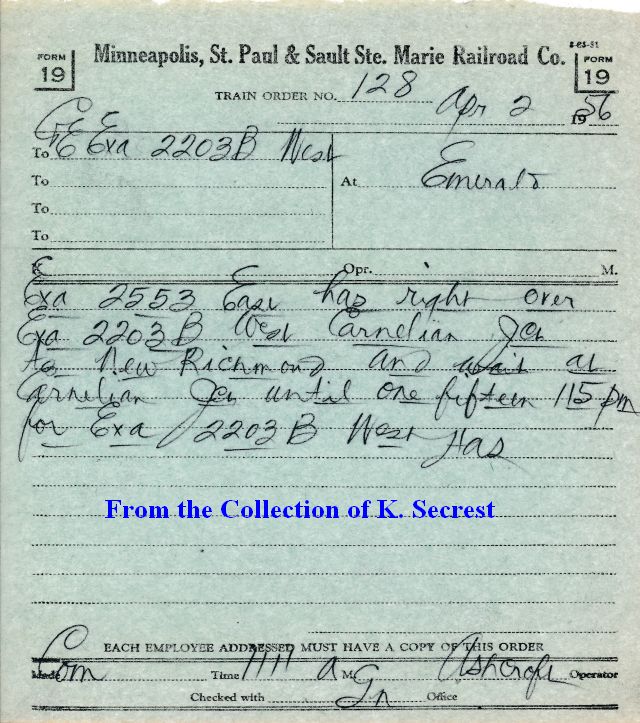 8-23-51
FORM 19 Minneapolis, St. Paul & Sault Ste. Marie Railroad Co. FORM 19
TRAIN ORDER NO. 128
Apr 2 1956
To C&E Exa 2203B West At Emerald
To
To
To
Opr. M.
Exa 2553 East has right over
Exa 2203B West Carnelian Jct
to New Richmond and wait at
Carnelian Jct until one fifteen 115 pm
for Exa 2203B West
HAS
From the Collection of K. Secrest
EACH EMPLOYEE ADDRESSED MUST HAVE A COPY OF THIS ORDER
Made Com Time 1111 A M. Ashcroft Operator
Checked with Office